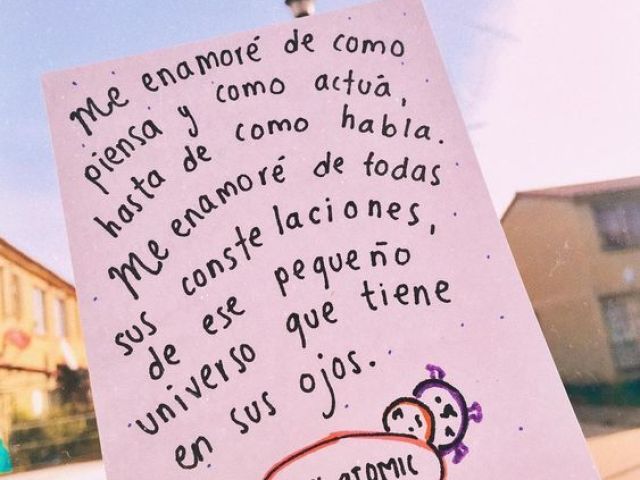 Me enamoré de como
piensa y como actuá,
hasta de como habla.
Me enamoré de todas
sus constelaciones,
de ese pequeño
universo que tiene
en sus ojos.
ATOMIC